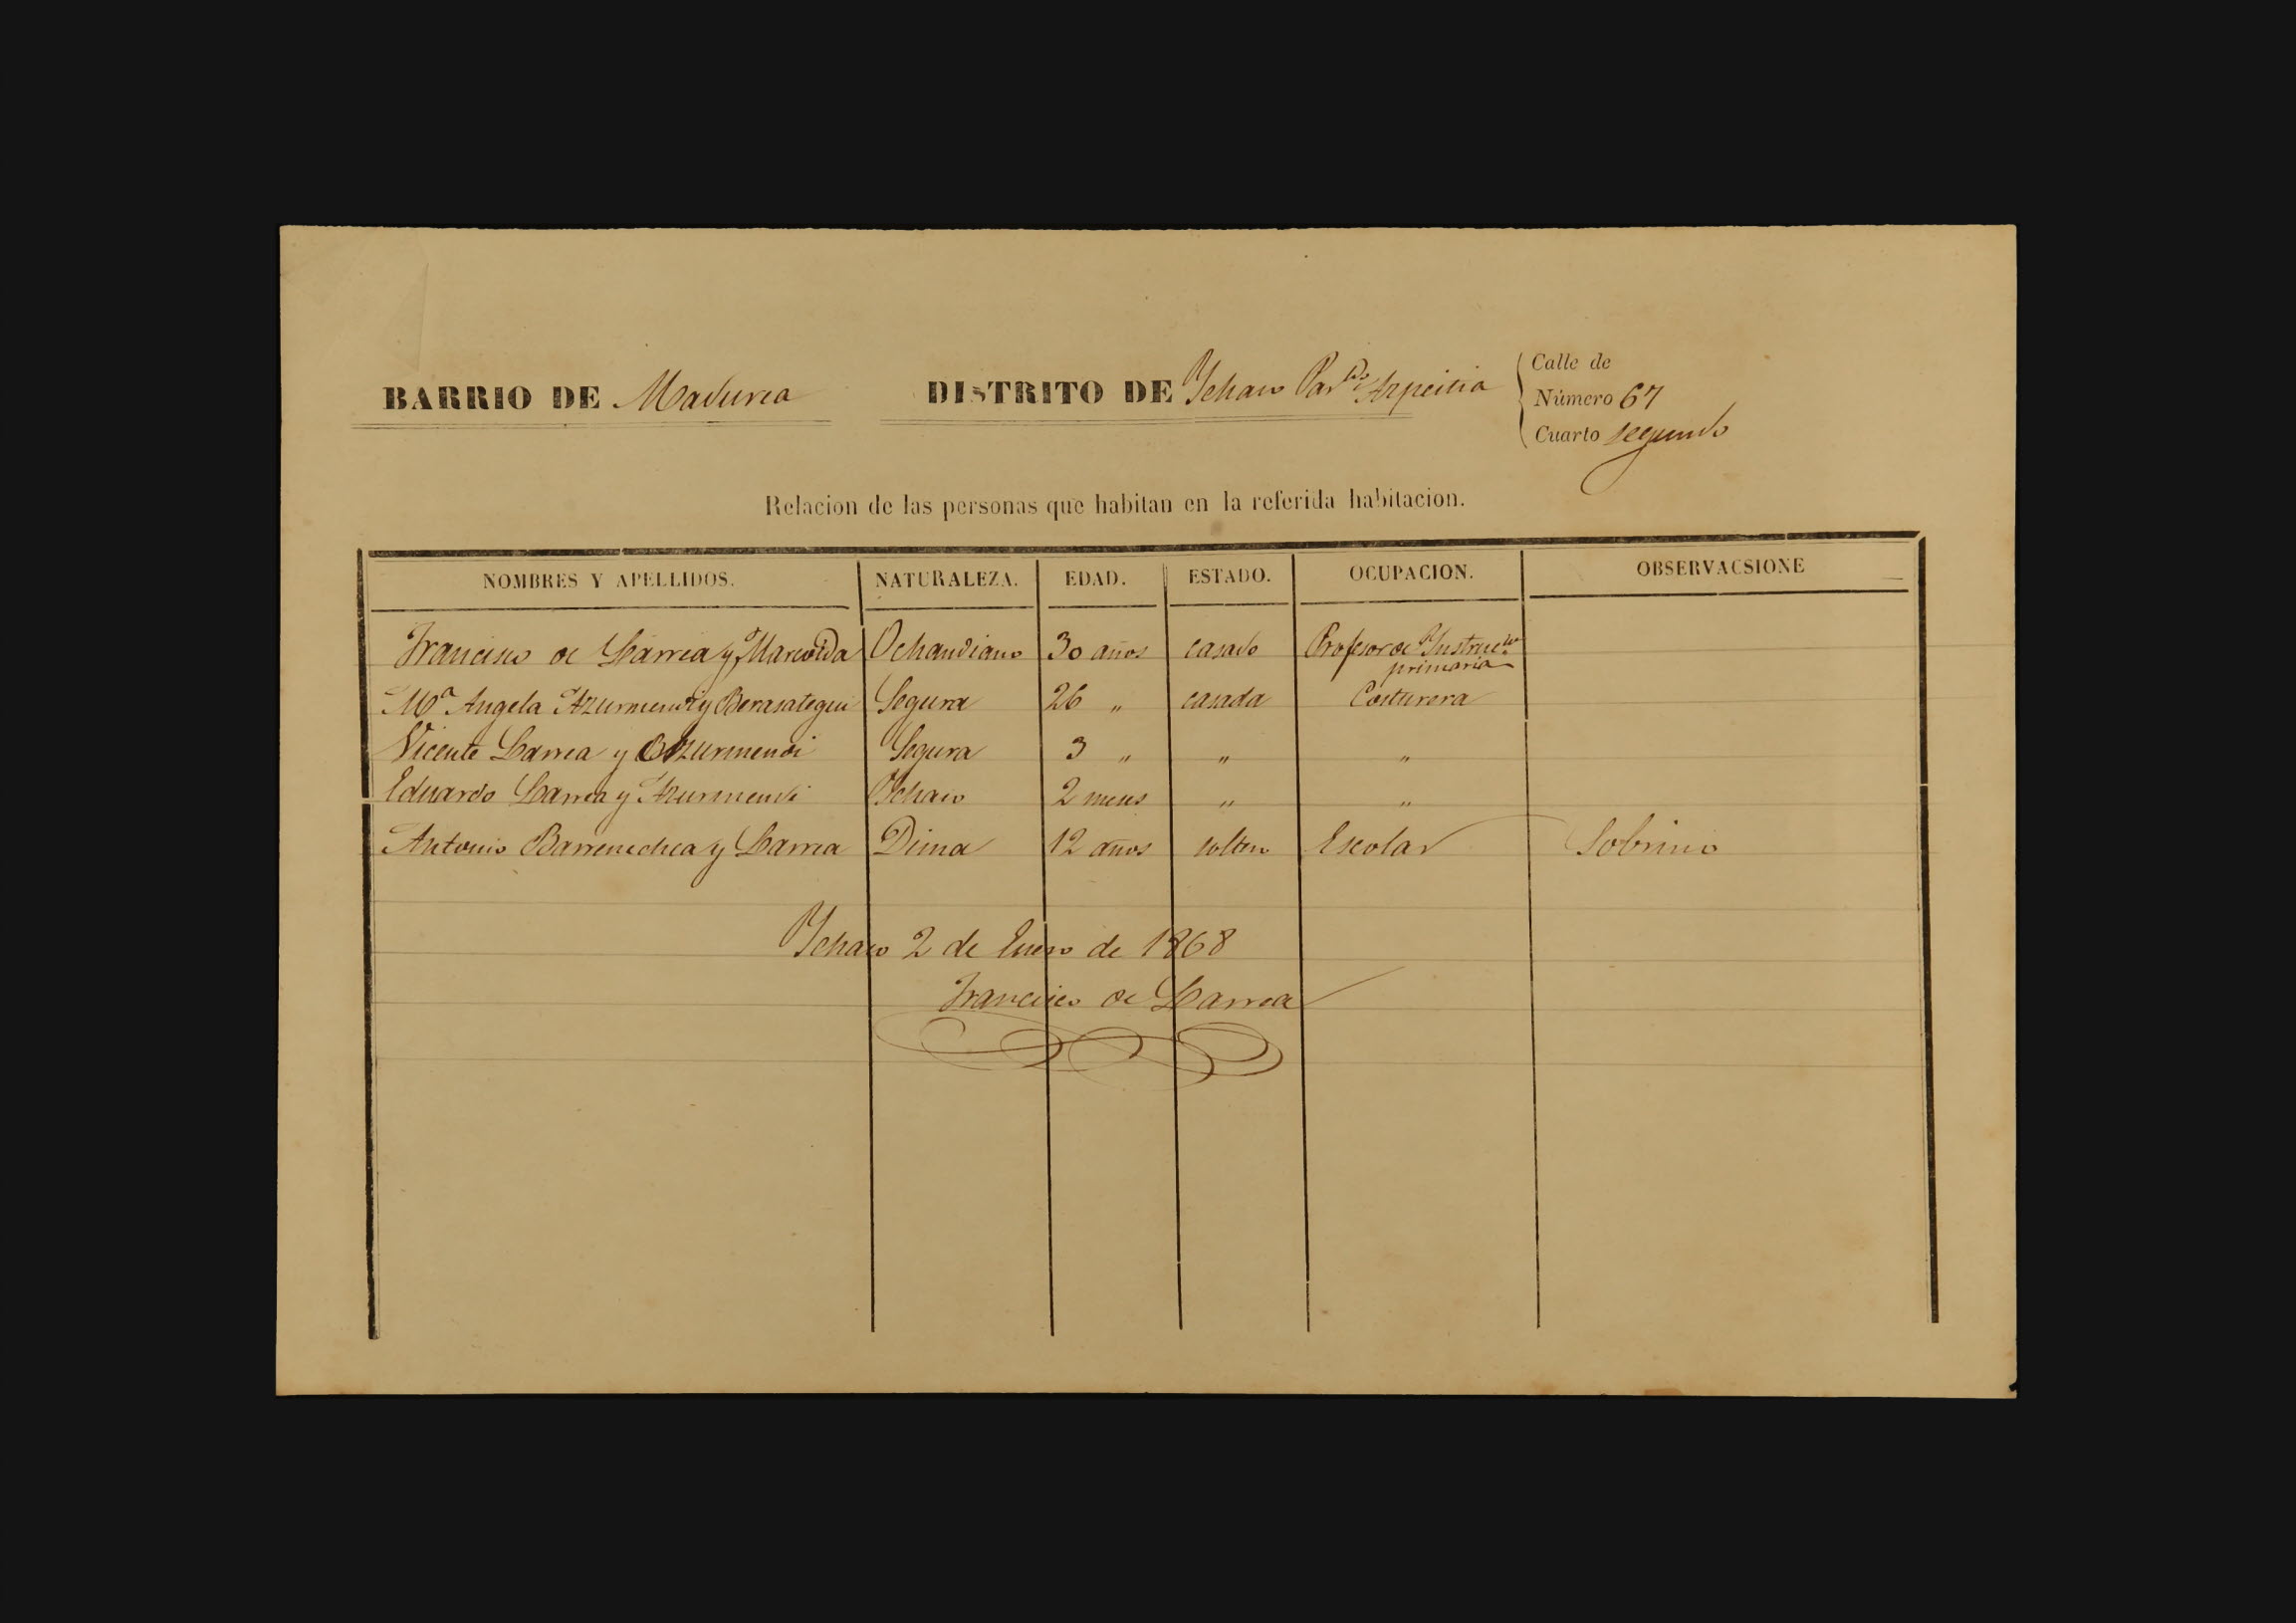 BARRIO DE Madurea DISTRITO DE Ychaso Par.do Azpeitia
Calle de
Número 67
Cuarto segundo
Relacion de las personas que habitan en la referida habitacion.
NOMBRES Y APELLIDOS. NATURALEZA. EDAD. ESTADO. OCUPACION. OBSERVACSIONE
Francisco de Larrea y Marcoida Ochandiano 30 años casado Profesor de Ynstrucn.
primaria
Ma Angela Azurmendi y Berasategui Segura 26 " casada Costurera
Vicente Larrea y Azurmendi Segura 3 " " "
Eduardo Larrea y Azurmendi Ychaso 2 meses " "
Antonio Barrenechea y Larrea Dima 12 años soltero Escolar Sobrino
Ychaso 2 de Enero de 1868
Francisco de Larrea